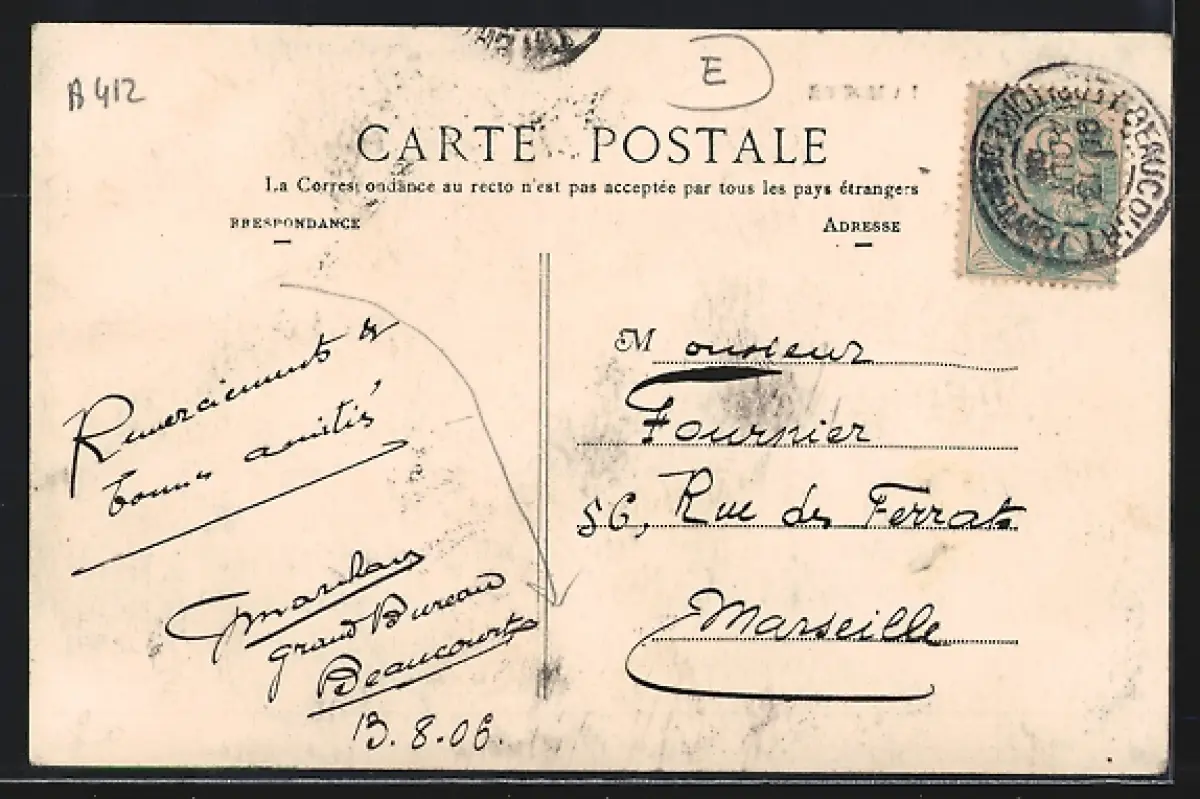 B 412
E
CARTE POSTALE
La Correspondance au recto n'est pas acceptée par tous les pays étrangers
RRESPONDANCE
ADRESSE
Monsieur
Fournier
56, Rue des Ferrats
Marseille
Remerciements &
bonnes amitiés
Grand Bureau
Beaucourt
13.8.06.